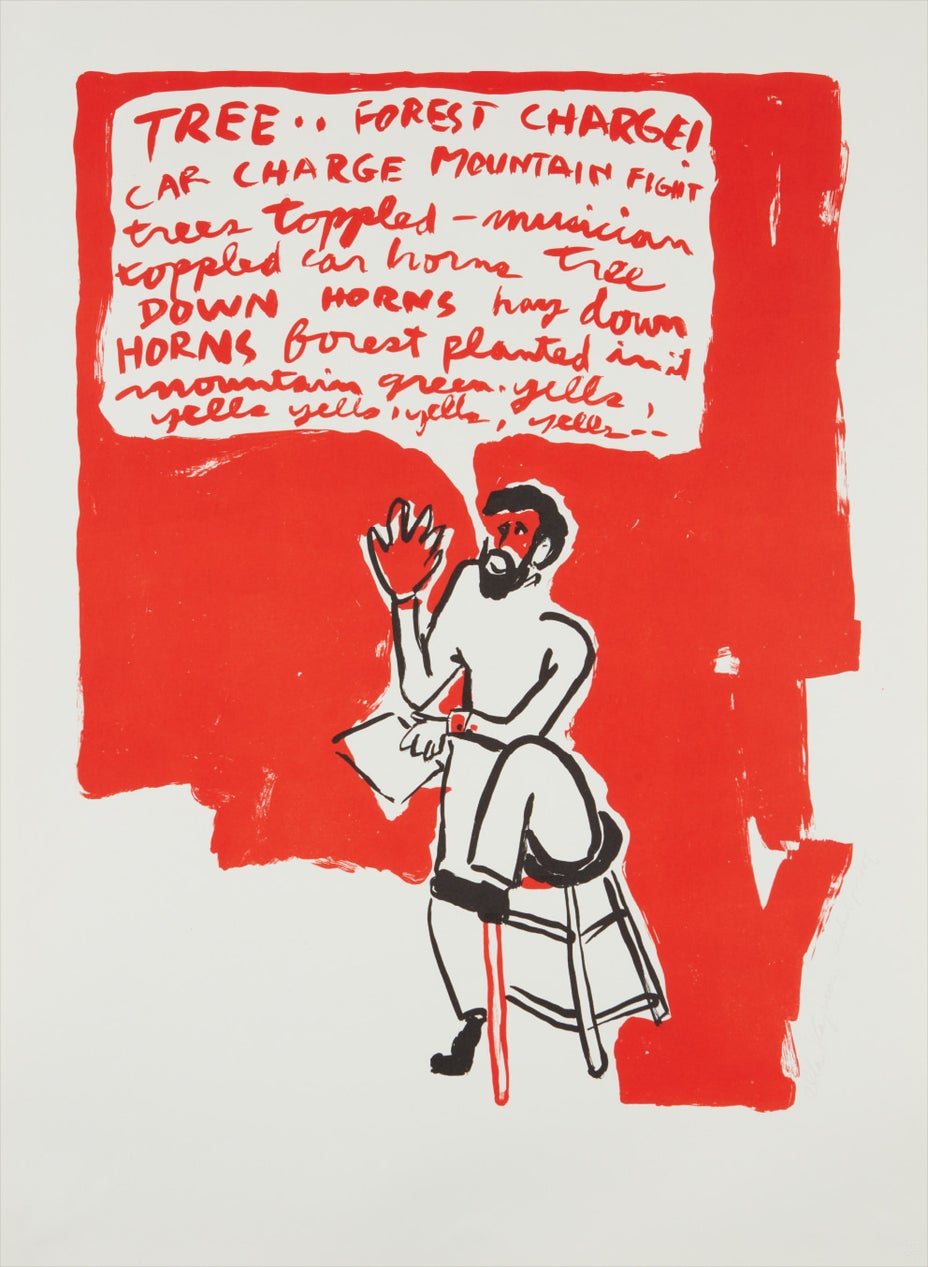 TREE.. FOREST CHARGE!
CAR CHARGE MOUNTAIN FIGHT
trees toppled - musician
toppled car horns Tree
DOWN HORNS hay down
HORNS forest planted in it
mountain green. yells,
yells yells, yells, yells--